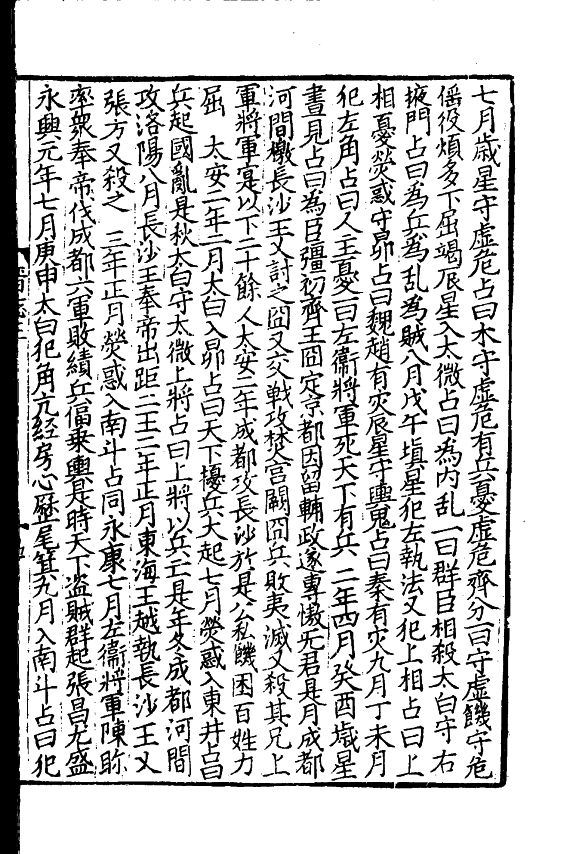 七月歲星守虛危占曰木守虛危有兵憂虛危齊分一曰守虛饑守危
徭役煩多下屈竭辰星入太微占曰為內乱一曰群臣相殺太白守右
掖門占曰為兵為乱為賊八月戊午塡星犯左執法又犯上相占曰上
相憂熒惑守昴占曰魏趙有灾辰星守輿鬼占曰秦有灾九月丁未月
犯左角占曰人主憂一曰左衞將軍死天下有兵 二年四月癸酉歲星
晝見占曰為臣彊初齊王冏定京都因留輔政遂專慠无君是月成都
河間檄長沙王乂討之冏乂交戰攻焚宮闕冏兵敗夷滅又殺其兄上
軍將軍寔以下二十餘人太安二年成都攻長沙於是公私饑困百姓力
屈 太安二年二月太白入昴占曰天下擾兵大起七月熒惑入東井占曰
兵起國亂是秋太白守太微上將占曰上將以兵亡是年冬成都河間
攻洛陽八月長沙王奉帝出距二王三年正月東海王越執長沙王乂
張方又殺之 三年正月熒惑入南斗占同永康七月左衞將軍陳眕
率衆奉帝伐成都六軍敗績兵偪乘輿是時天下盗賊群起張昌尤盛
永興元年七月庚申太白犯角亢經房心歷尾箕九月入南斗占曰犯